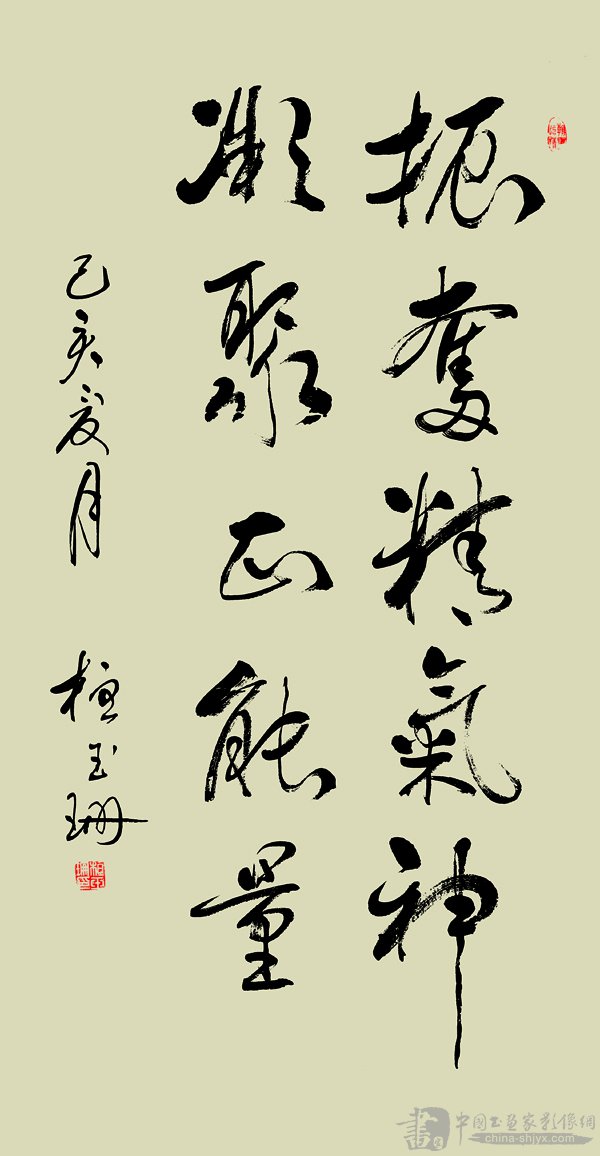 振奮精氣神
凝聚正能量
己亥夏月 桓玉珊
中國书画家影像網
china-shjyx.com